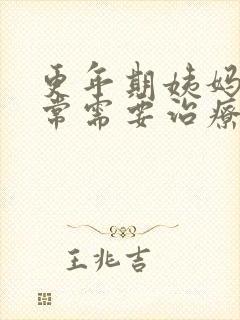 更年期姨妈
常需要治疗
王兆吉